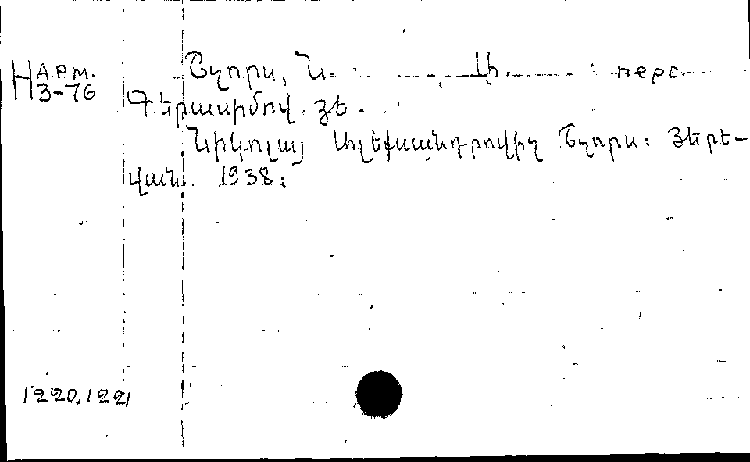 Н АРМ. Շչորս, Ն. Ա. перс.
3-76 Գերասիմով. Յե.
Նիկոլայ Ալեքսանդրովիչ Շչորս: Յերե-
վան. 1938:
1220,1221